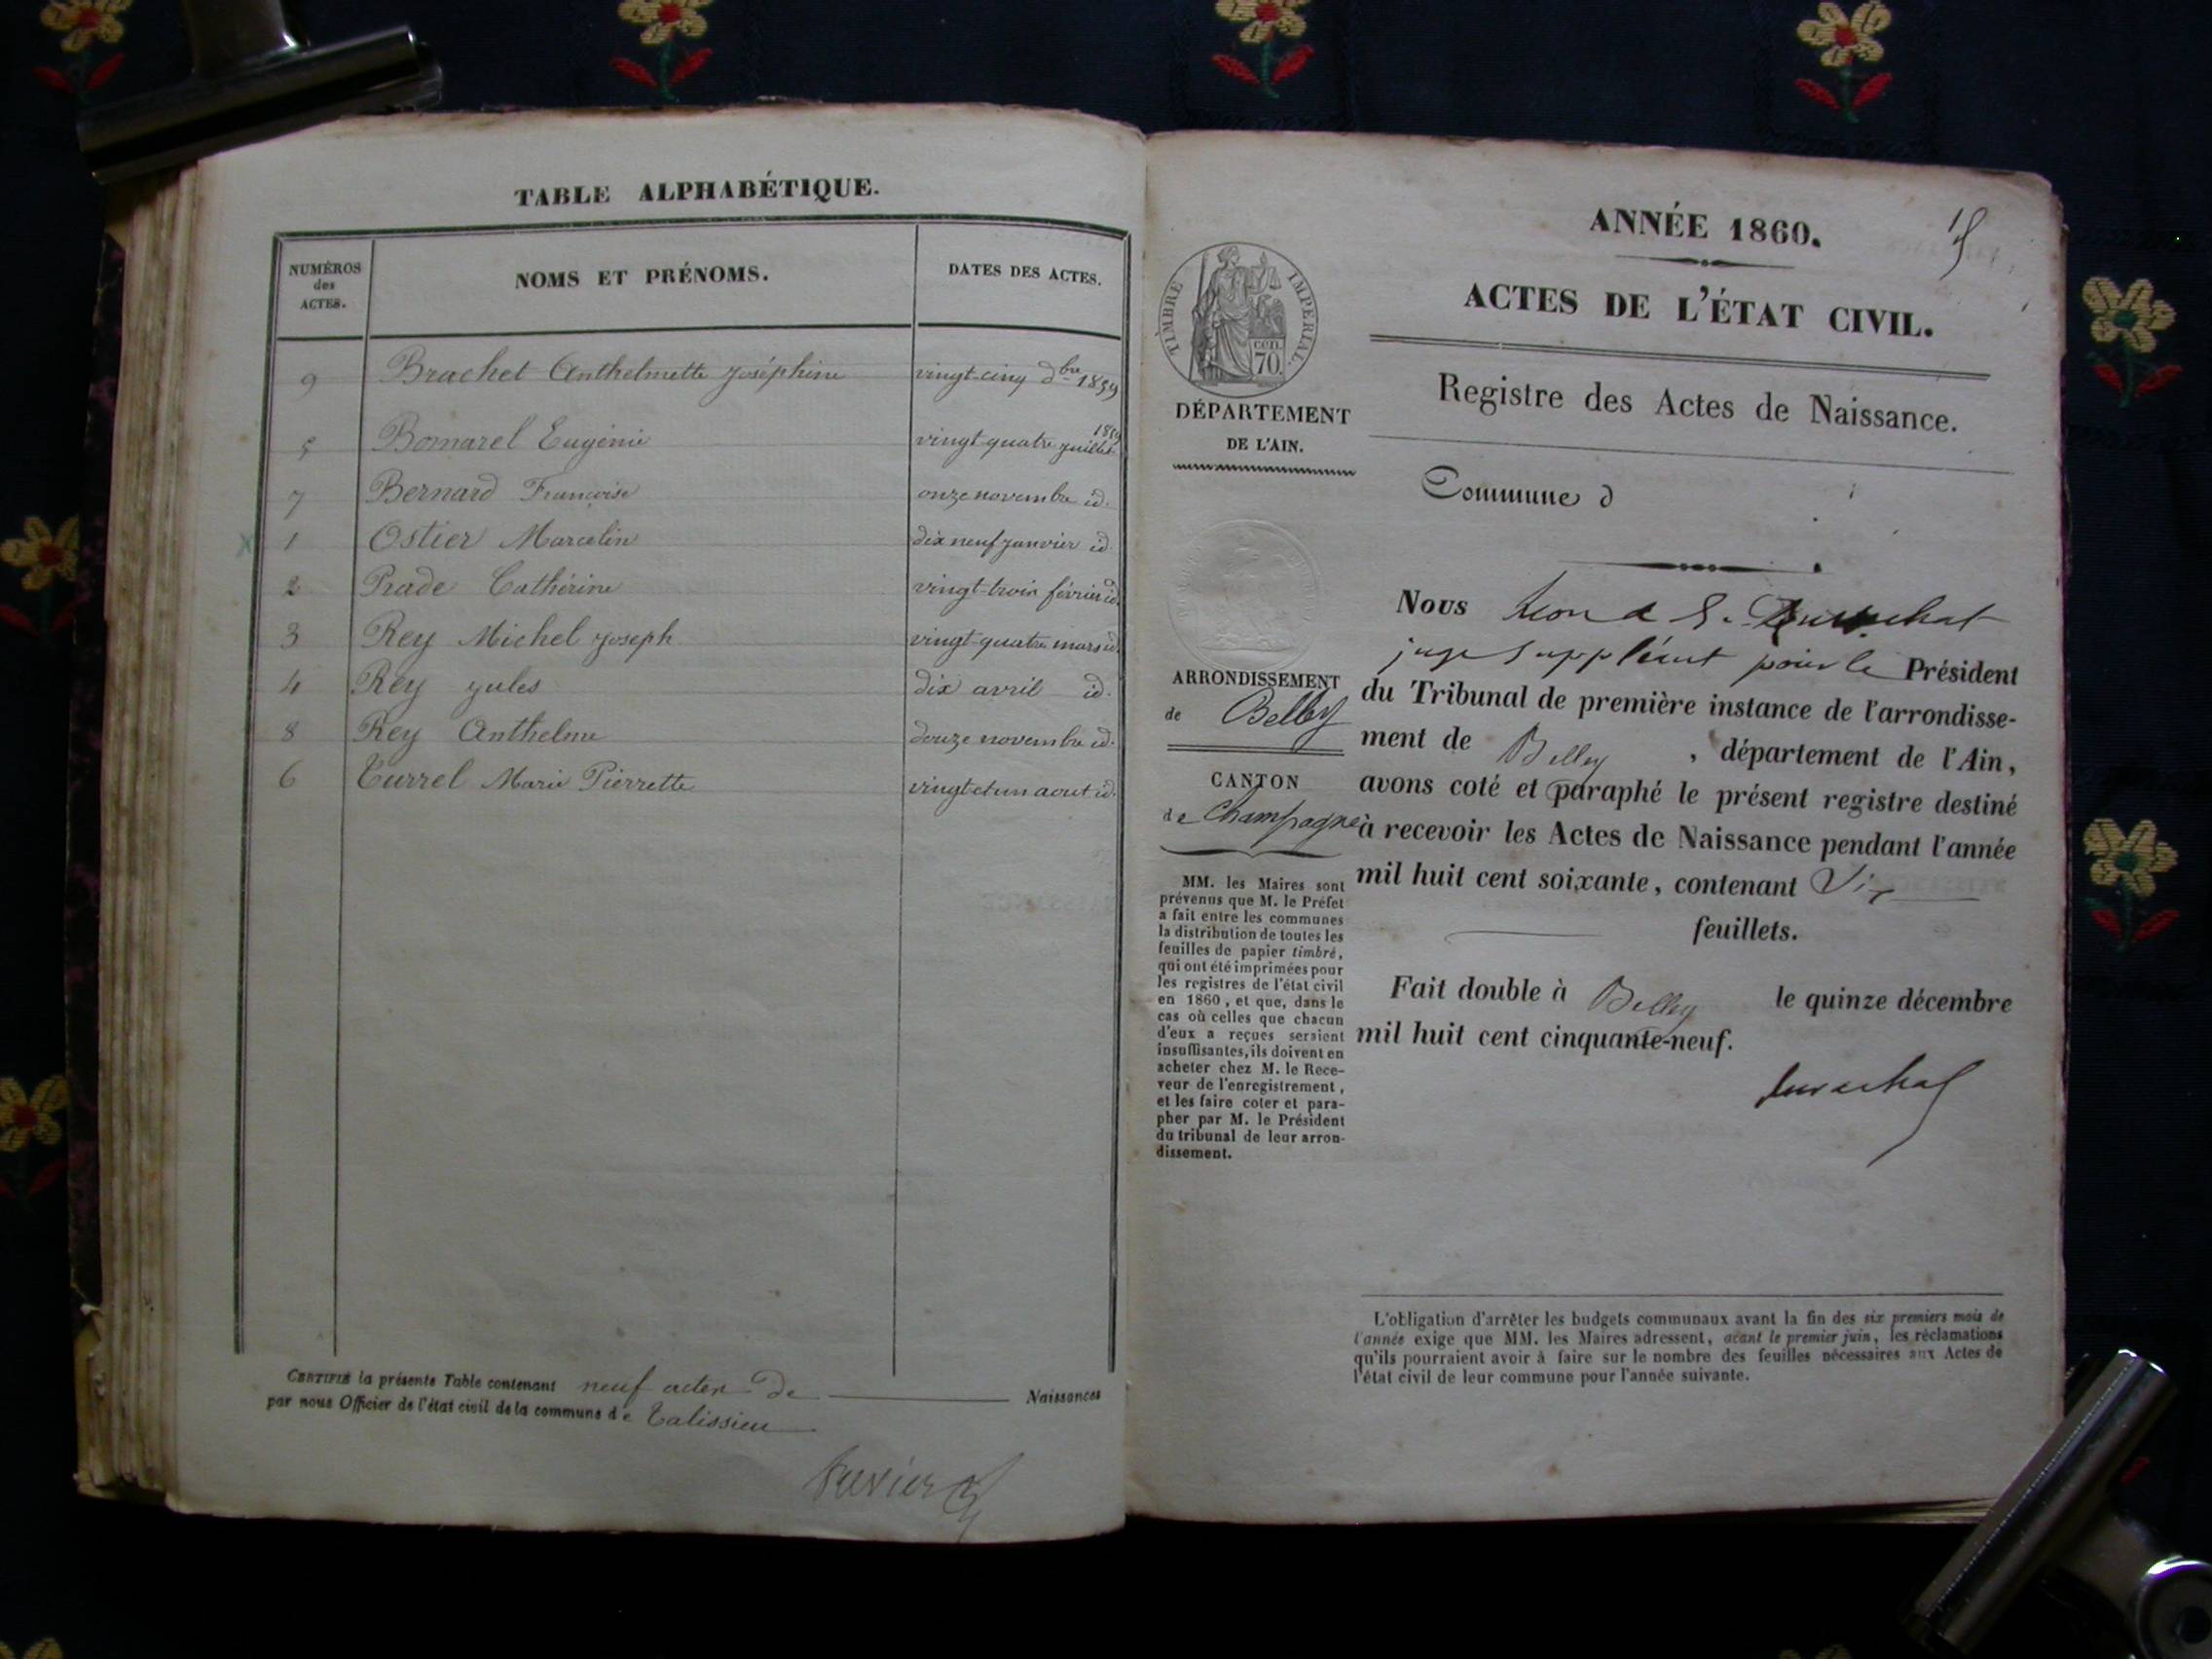 TABLE ALPHABÉTIQUE.
NUMÉROS des ACTES.
NOMS ET PRÉNOMS.
DATES DES ACTES.
9 Brachet Anthelmette Joséphine vingt-cinq dbre 1859
5 Bomarel Eugénie vingt-quatre juillet 1859
7 Bernard Françoise onze novembre id.
1 Ostier Marcelin dix neuf janvier id.
2 Prade Cathérine vingt-trois février id.
3 Rey Michel Joseph vingt-quatre mars id.
4 Rey Jules dix avril id.
8 Rey Anthelme douze novembre id.
6 Turrel Marie Pierrette vingt et un aout id.
CERTIFIÉ la présente Table contenant neuf actes de Naissances
par nous Officier de l'état civil de la commune de Talissieu
ANNÉE 1860.
ACTES DE L'ÉTAT CIVIL.
Registre des Actes de Naissance.
Commune d
TIMBRE IMPERIAL.
cen. 70.
DÉPARTEMENT
DE L'AIN.
ARRONDISSEMENT
de Belley
CANTON
de Champagne
MM. les Maires sont
prévenus que M. le Préfet
a fait entre les communes
la distribution de toutes les
feuilles de papier timbré,
qui ont été imprimées pour
les registres de l'état civil
en 1860, et que, dans le
cas où celles que chacun
d'eux a reçues seraient
insuffisantes, ils doivent en
acheter chez M. le Rece-
veur de l'enregistrement,
et les faire coter et para-
pher par M. le Président
du tribunal de leur arron-
dissement.
Nous
juge suppléant pour le Président
du Tribunal de première instance de l'arrondisse-
ment de Belley, département de l'Ain,
avons coté et paraphé le présent registre destiné
à recevoir les Actes de Naissance pendant l'année
mil huit cent soixante, contenant
feuillets.
Fait double à Belley le quinze décembre
mil huit cent cinquante-neuf.
L'obligation d'arrêter les budgets communaux avant la fin des six premiers mois de
l'année exige que MM. les Maires adressent, avant le premier juin, les réclamations
qu'ils pourraient avoir à faire sur le nombre des feuilles nécessaires aux Actes de
l'état civil de leur commune pour l'année suivante.